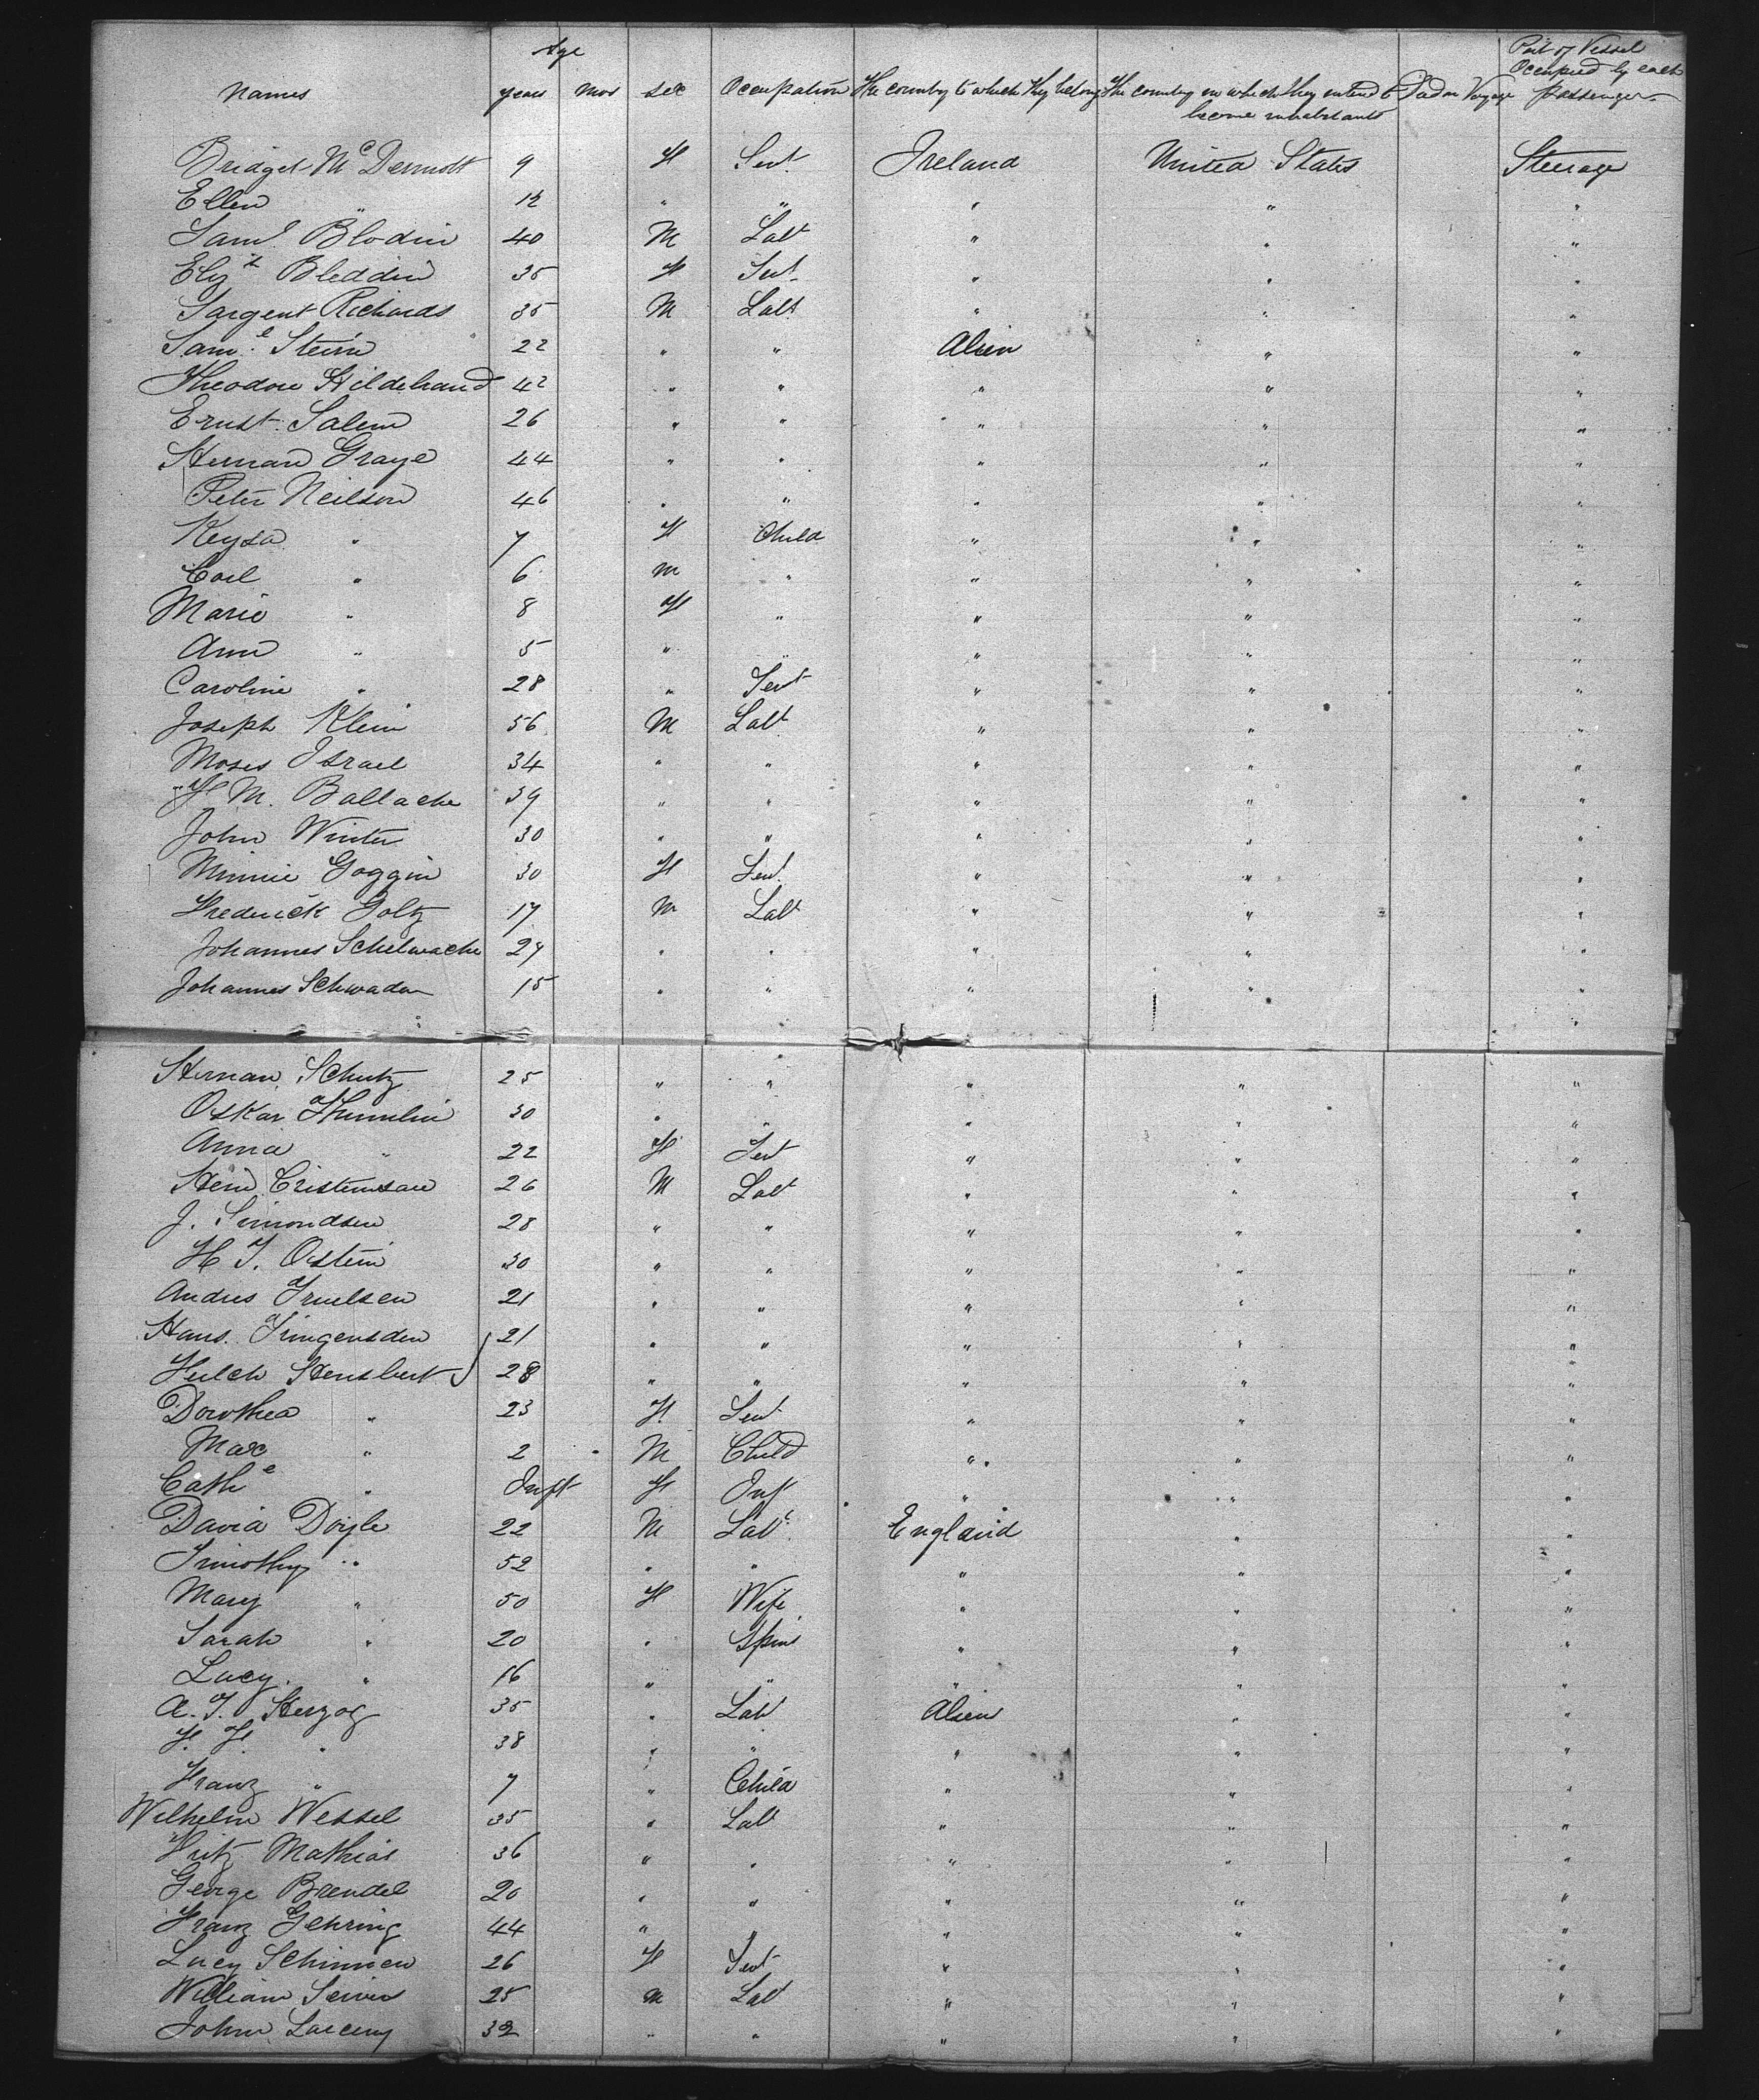 Age
Part of Vessel Occupied by each passenger
Names years mos sex Occupation The country to which they belong The country in which they intend to become inhabitants Died on Voyage
Bridget McDermott 9 F Sert Ireland United States Steerage
Ellen " 12 " " " " "
Saml Blodin 40 M Labr " " "
Elizth Bleddin 35 F Sert " " "
Sargent Richards 35 M Labr " " "
Saml Stein 22 " " Alien " "
Theodore Hildebrand 42 " " " " "
Ernst Salem 26 " " " " "
Herman Graye 44 " " " " "
Peter Neilson 46 " " " " "
Keysa " 7 F Child " " "
Carl " 6 M " " " "
Marie " 8 F " " " "
Ann " 5 " " " " "
Caroline " 28 " Sert " " "
Joseph Klein 56 M Labr " " "
Moses Israel 34 " " " " "
F M. Ballache 39 " " " " "
John Winter 30 " " " " "
Minnie Goggin 30 F Sert " " "
Frederick Goltz 17 M Labr " " "
Johannes Schelwache 29 " " " " "
Johannes Schwader 15 " " " " "
Herman Schutz 25 " " " " "
Oskar 30 " " " " "
Anna " 22 F Sert " " "
Hein Cristensen 26 M Labr " " "
J. Simondsen 28 " " " " "
H T. Ostein 30 " " " " "
Andres Truelsen 21 " " " " "
Hans 21 " " " " "
28 " " " " "
Dorothea " 23 F Sert " " "
Max " 2 M Child " " "
Cathe " Inft F Inf " " "
David Doyle 22 M Labr England " "
Timothy " 52 " " " " "
Mary " 50 F Wife " " "
Sarah " 20 " Spinr " " "
Lucy " 16 " " " " "
A. T. Herzog 35 " Labr Alien " "
F. F " 38 " " " " "
Franz " 7 " Child " " "
Wilhelm Wessel 35 " Labr " " "
Fritz Mathias 36 " " " " "
George Brendel 20 " " " " "
Franz Gehring 44 " " " " "
Lucy Schinnen 26 F Sert " " "
William 25 M Labr " " "
John 32 " " " " "